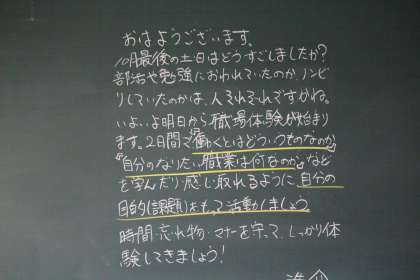 おはようございます。
10月最後の土日はどうすごしましたか?
部活や勉強におわれていたのか、ノンビ
りしていたのかは、人それぞれですかね。
いよいよ明日から職場体験が始まり
ます。2日間で『働くとはどういうものなのか』
『自分のなりたい職業は何なのか』など
を学んだり感じ取れるように、自分の
目的(課題)をもって活動しましょう。
時間、忘れ物、マナーを守って、しっかり体
験してきましょう!